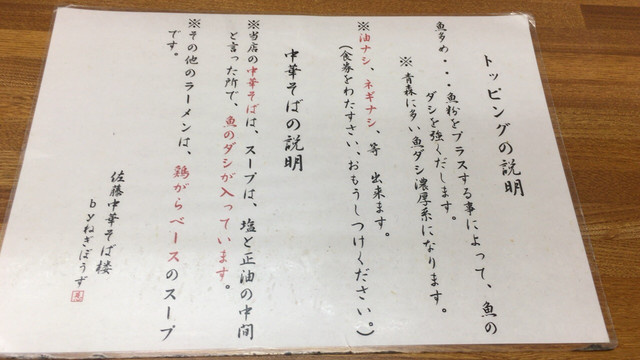 トッピングの説明
魚多め・・・魚粉をプラスする事によって、魚の
ダシを強くだします。
※青森に多い魚ダシ濃厚系になります。
※油ナシ、ネギナシ、等 出来ます。
(食券をわたすさい、おもうしつけください。)
中華そばの説明
※当店の中華そばは、スープは、塩と正油の中間
と言った所で、魚のダシが入っています。
※その他のラーメンは、鶏がらベースのスープ
です。
佐藤中華そば楼
byねぎぼうず